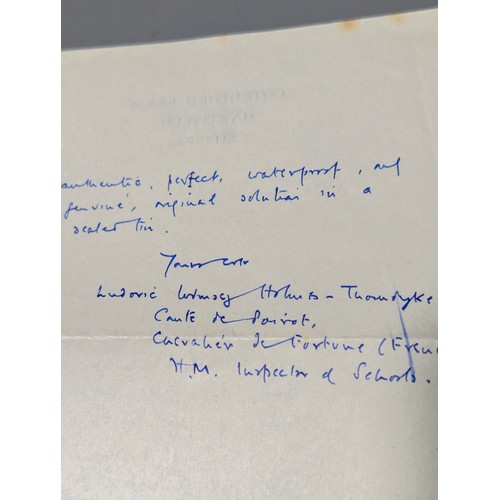 authentic, perfect, waterproof, and
genuine, original solution in a
sealed tin.
Yours etc
Ludovic Holmes - Thorndyke
Comte de Poirot,
Chevalier de Fortune (Frenc
H.M. Inspector of Schools.